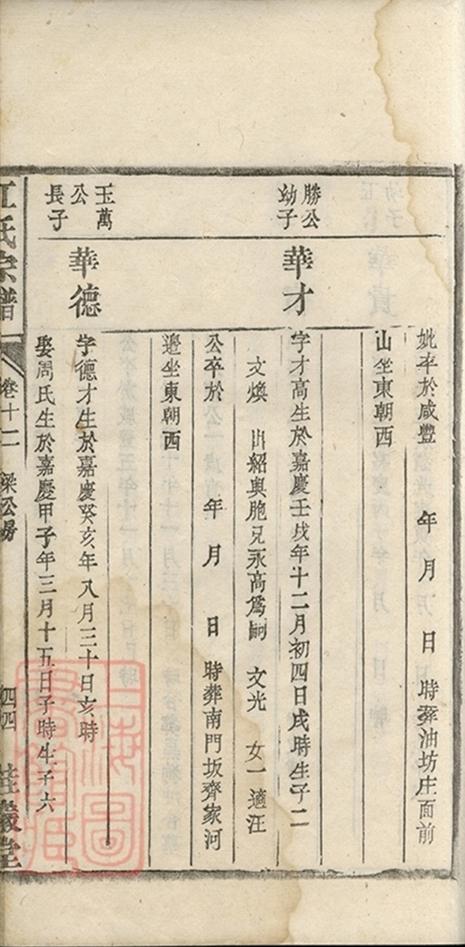 妣卒於咸豐　年　月　日　時葬油坊庄面前
山坐東朝西
勝公
幼子
華才
字才高生於嘉慶壬戌年十二月初四日戌時生子二
文煥　出紹與胞兄永高為嗣　文光　女一適汪
公卒於　年　月　日　時葬南門坂齊家河
邊坐東朝西
玉萬
公
長子
華德
字德才生於嘉慶癸亥年八月三十日亥時
娶周氏生於嘉慶甲子年三月十五日子時生子六
江氏宗譜
卷十二
梁公房
四四